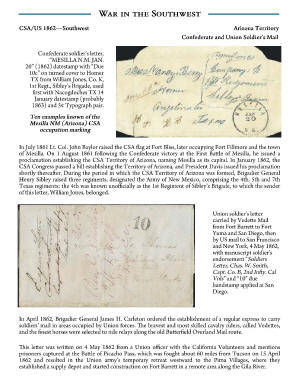 WAR IN THE SOUTHWEST
CSA/US 1862—Southwest
Arizona Territory
Confederate and Union Soldier's Mail
Confederate soldier's letter,
"MESILLA N.M. JAN.
20" (1862) datestamp with "Due
10c" on turned cover to Homer
TX from William Jones, Co. K,
1st Regt., Sibley's Brigade, used
first with Nacogdoches TX 14
January datestamp (probably
1863) and 5c Typograph pair.
Ten examples known of the
Mesilla NM (Arizona) CSA
occupation marking
In July 1861 Lt. Col. John Baylor raised the CSA flag at Fort Bliss, later occupying Fort Fillmore and the town
of Mesilla. On 1 August 1861 following the Confederate victory at the First Battle of Mesilla, he issued a
proclamation establishing the CSA Territory of Arizona, naming Mesilla as its capital. In January 1862, the
CSA Congress passed a bill establishing the Territory of Arizona, and President Davis issued his proclamation
shortly thereafter. During the period in which the CSA Territory of Arizona was formed, Brigadier General
Henry Sibley raised three regiments, designated the Army of New Mexico, comprising the 4th, 5th and 7th
Texas regiments; the 4th was known unofficially as the 1st Regiment of Sibley's Brigade, to which the sender
of this letter, William Jones, belonged.
Union soldier's letter
carried by Vedette Mail
from Fort Barrett to Fort
Yuma and San Diego, then
by US mail to San Francisco
and New York, 4 May 1862,
with manuscript soldier's
endorsement "Soldiers
Letter, Chas. W. Smith,
Capt. Co. B, 2nd Infty. Cal
Vols" and "10" due
handstamp applied at San
Diego.
10
In April 1862, Brigadier General James H. Carleton ordered the establishment of a regular express to carry
soldiers' mail in areas occupied by Union forces. The bravest and most skilled cavalry riders, called Vedettes,
and the finest horses were selected to ride relays along the old Butterfield Overland Mail route.
This letter was written on 4 May 1862 from a Union officer with the California Volunteers and mentions
prisoners captured at the Battle of Picacho Pass, which was fought about 60 miles from Tucson on 15 April
1862 and resulted in the Union army's temporary retreat westward to the Pima Villages, where they
established a supply depot and started construction on Fort Barrett in a remote area along the Gila River.